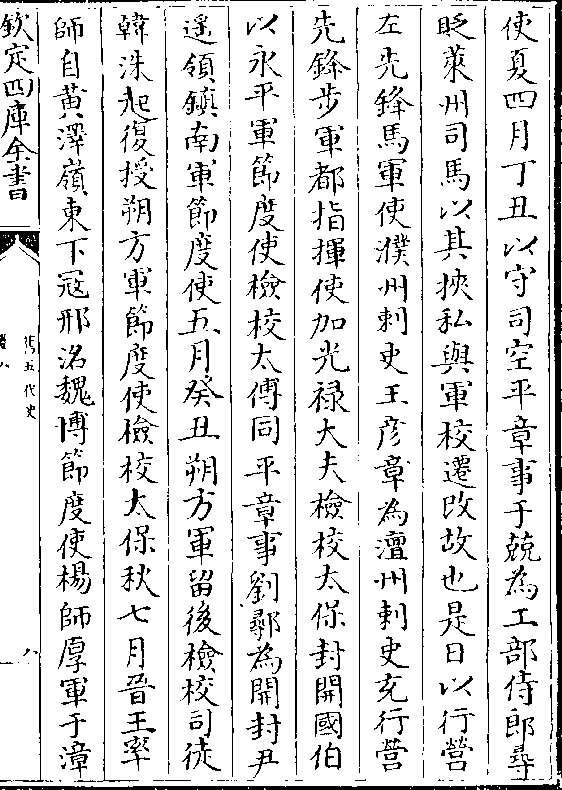 使夏四月丁丑以守司空平章事于兢為工部侍郎尋
貶萊州司馬以其挾私與軍校遷改故也是日以行營
左先鋒馬軍使濮州刺史王彦章為澶州刺史充行營
先鋒步軍都指揮使加光禄大夫檢校太保封開國伯
以永平軍節度使檢校太傅同平章事劉鄩為開封尹
遥領鎮南軍節度使五月癸丑朔方軍留後檢校司徒
韓洙起復授朔方軍節度使檢校太保秋七月晉王率
師自黄澤嶺東下寇邢洺魏博節度使楊師厚軍于漳
欽定四庫全書
舊五代史
卷八
八